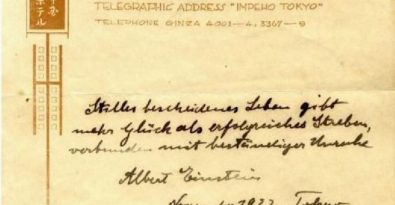 ホテル
TELEGRAPHIC ADDRESS "IMPEHO TOKYO"
TELEPHONE GINZA 4001—4, 3367—9
Stilles bescheidenes Leben gibt
mehr Glück als erfolgreiches Streben,
verbunden mit beständiger Unruhe
Albert Einstein
1922